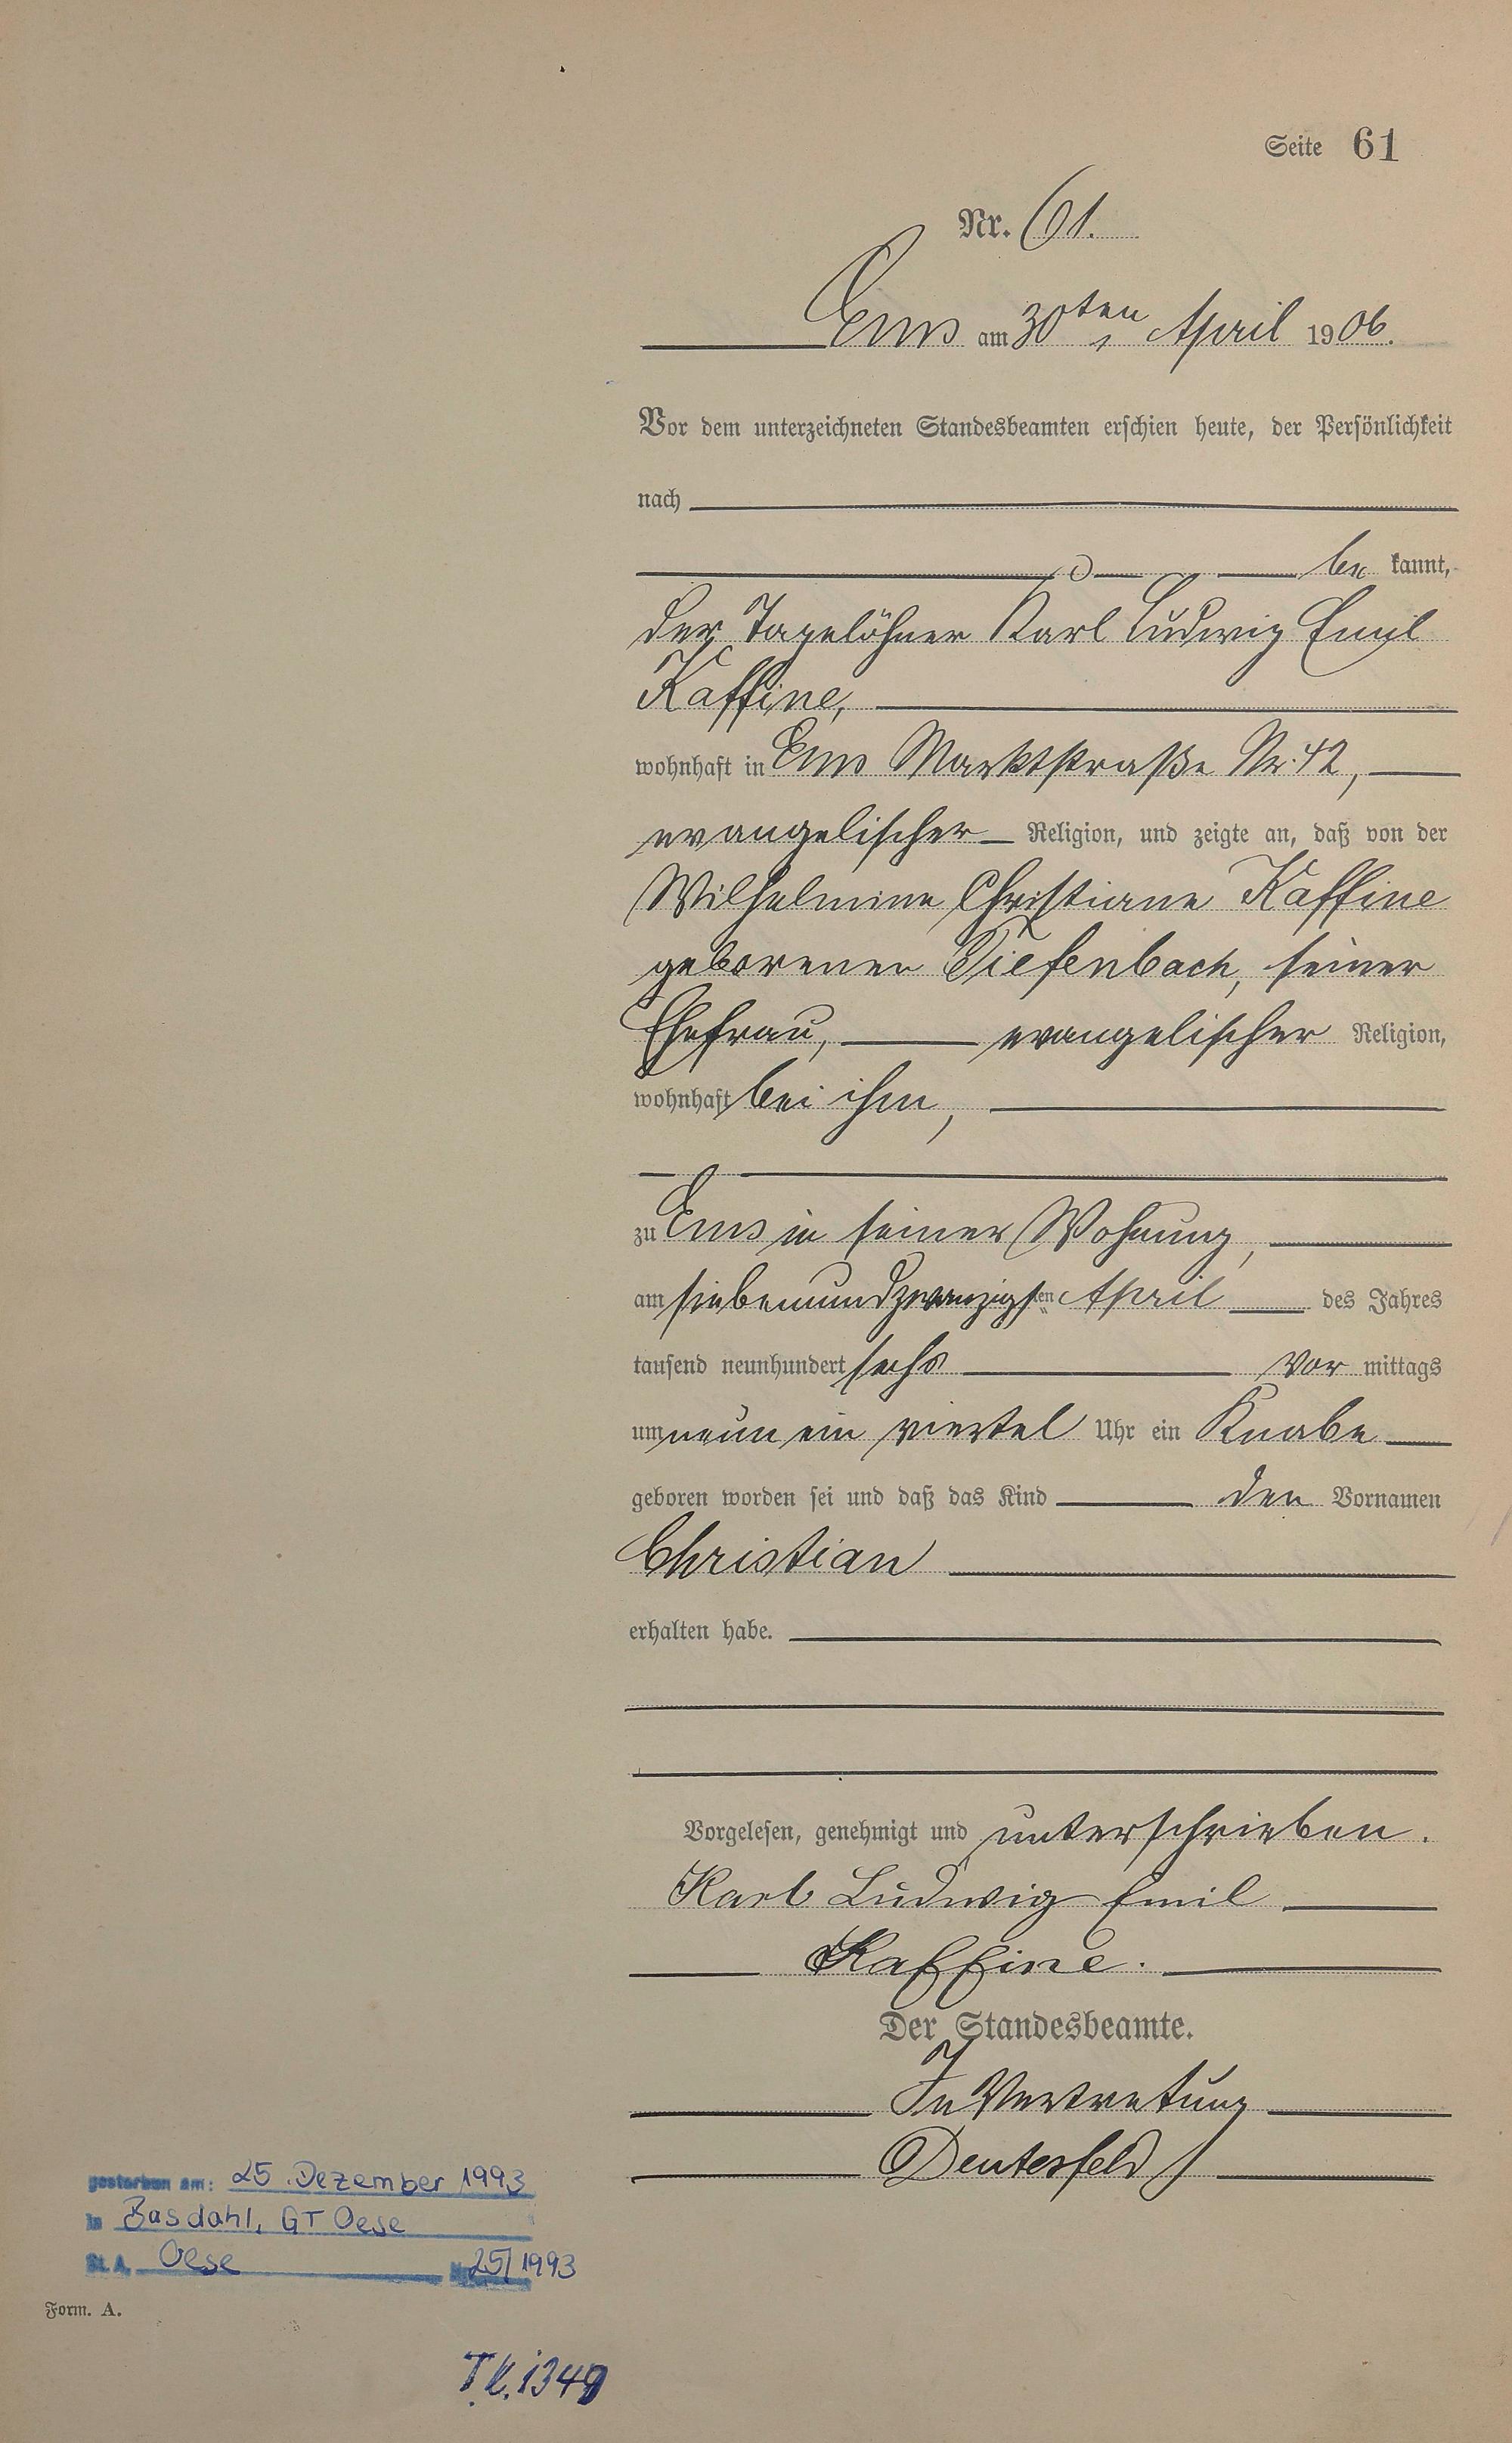 Seite 61
Nr. 61.
Ems am 30ten April 1906.
Vor dem unterzeichneten Standesbeamten erschien heute, der Persönlichkeit
nach
be kannt,
der Tagelöhner Karl Ludwig Emil
Kaffine,
wohnhaft in Ems Marktstraße Nr. 42,
evangelischer Religion, und zeigte an, daß von der
Wilhelmine Christiane Kaffine
geborenen Tiefenbach, seiner
Ehefrau, evangelischer Religion,
wohnhaft bei ihm,
zu Ems in seiner Wohnung,
am siebenundzwanzigsten April des Jahres
tausend neunhundert sechs vor mittags
um neun ein viertel Uhr ein Knabe
geboren worden sei und daß das Kind den Vornamen
Christian
erhalten habe.
Vorgelesen, genehmigt und unterschrieben.
Karl Ludwig Emil
Kaffine.
Der Standesbeamte.
In Vertretung
gestorben am: 25. Dezember 1993
in Basdahl, GT Oese
St. A. Oese Nr. 25/1993
Form. A.